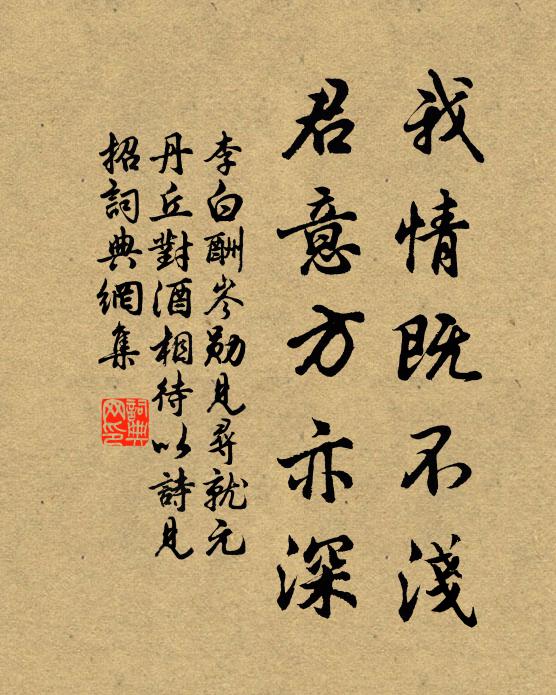 我情既不淺
君意方亦深
李白酬岑勛見尋就元
丹丘對酒相待以詩見
招詞典網集
詞典
网印